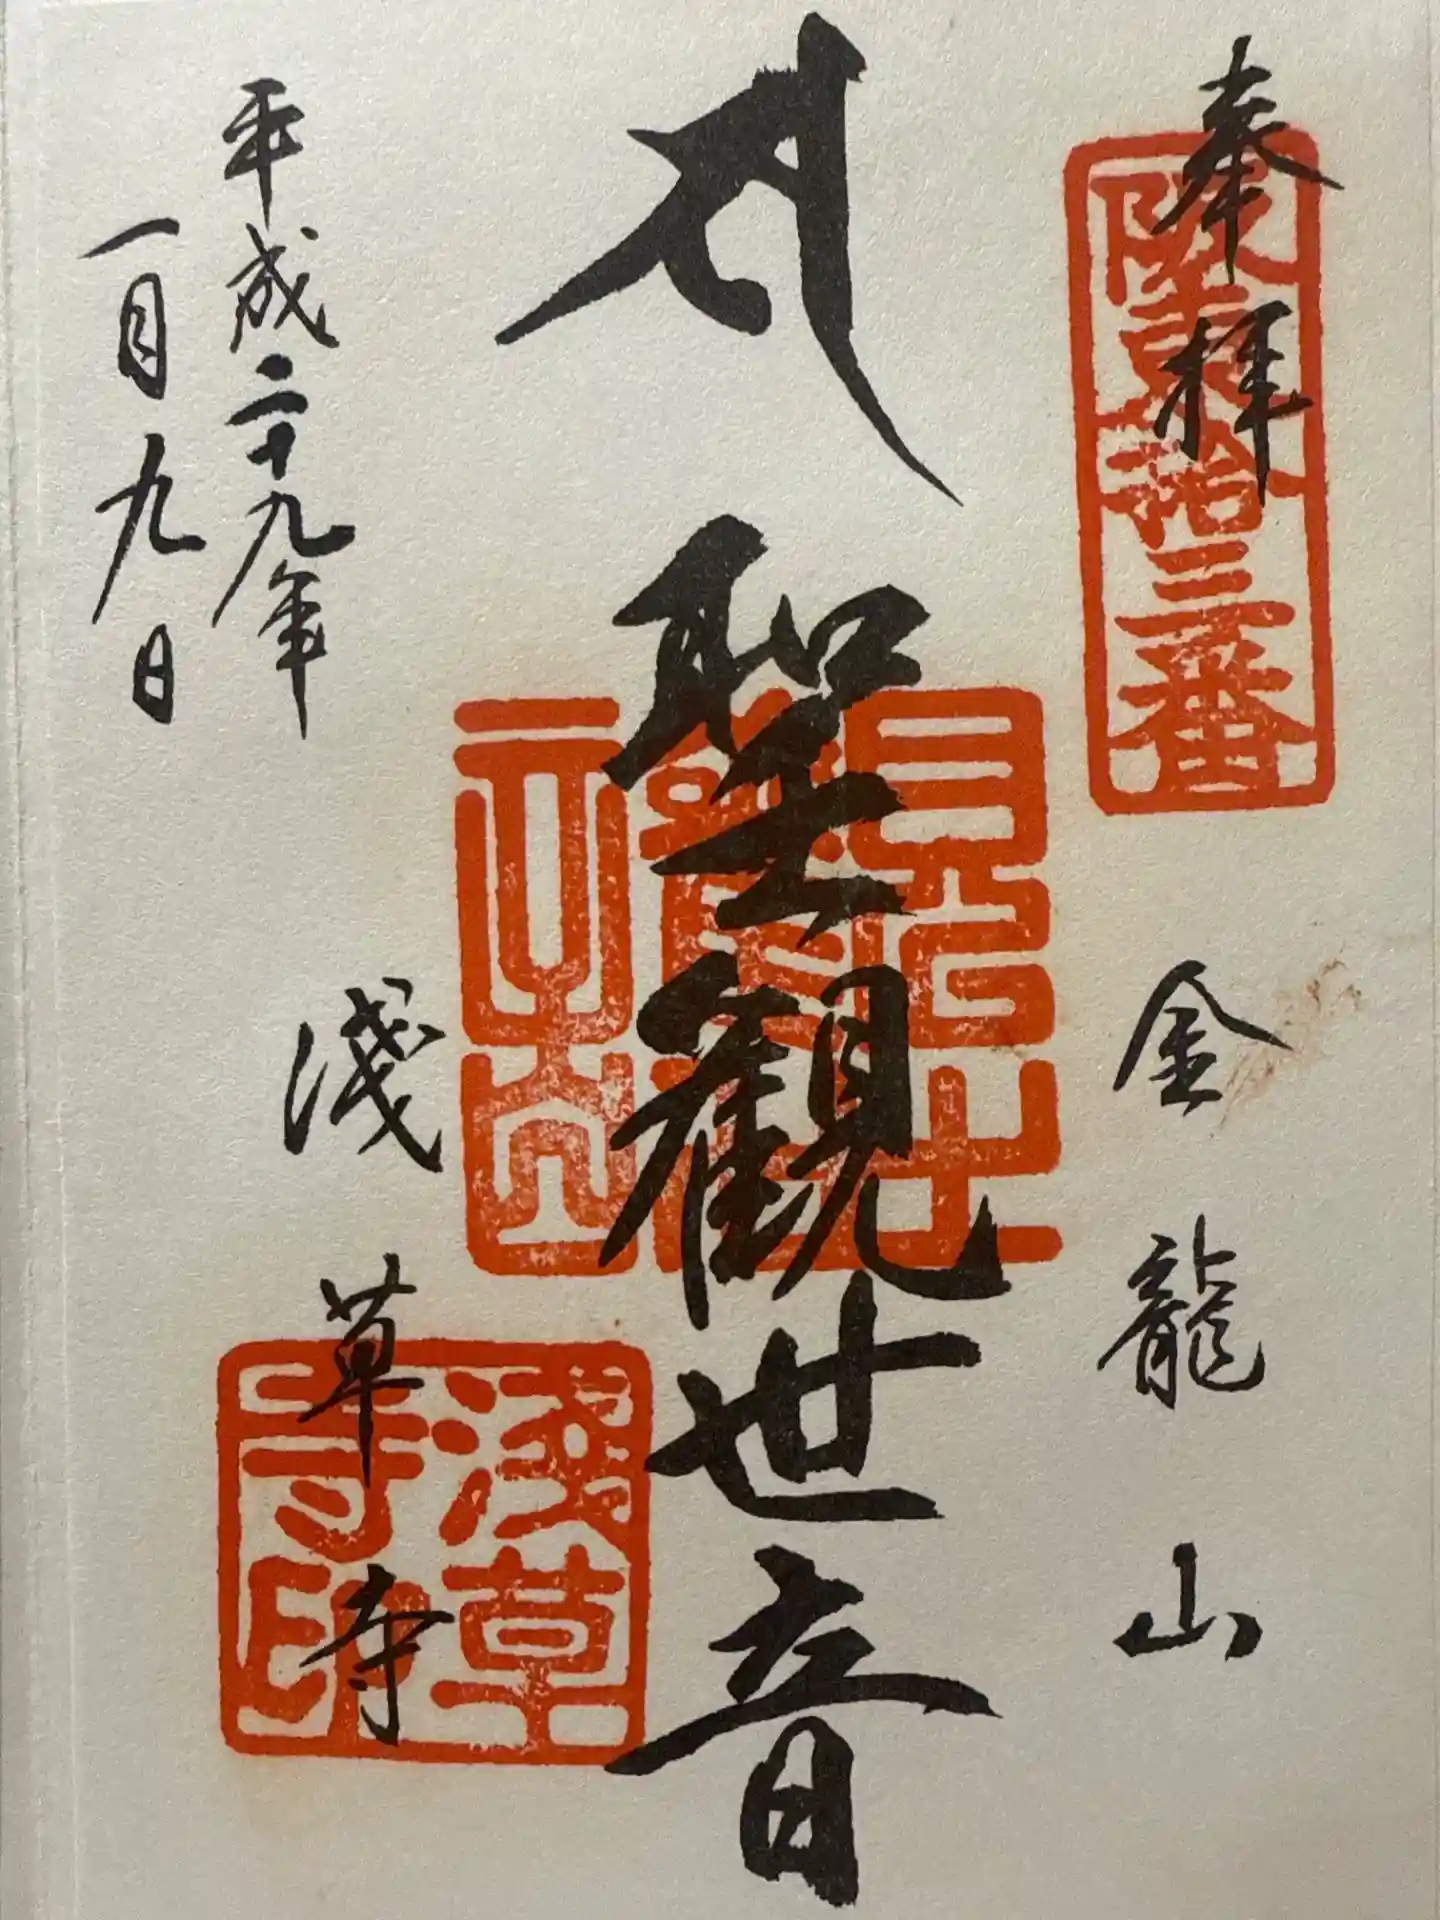 奉拝
坂東拾三番
金龍山
聖観世音
平成二十九年
一月九日
淺草寺
淺草寺印